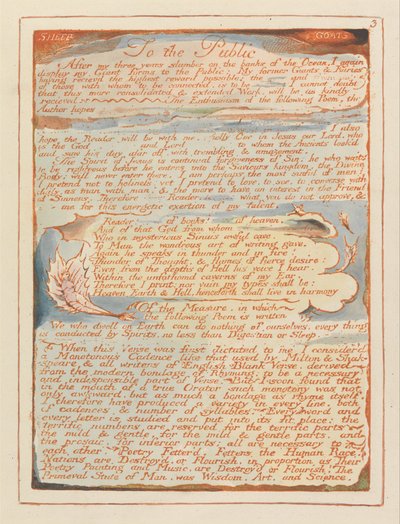 3
SHEEP
GOATS
To the Public
After my three years slumber on the banks of the Ocean, I again
display my Giant forms to the Public: My former Giants & Fairies
having reciev'd the highest reward possible: the and
of those with whom to be connected, is to be I cannot doubt
that this more consolidated & extended Work, will be as kindly
recieved The Enthusiasm of the following Poem, the
Author hopes
I also
hope the Reader will be with me, wholly One in Jesus our Lord, who
is the God and Lord to whom the Ancients look'd
and saw his day afar off, with trembling & amazement.
The Spirit of Jesus is continual forgiveness of Sin: he who waits
to be righteous before he enters into the Saviours kingdom, the Divine
Body; will never enter there. I am perhaps the most sinful of men!
I pretend not to holiness! yet I pretend to love, to see, to converse with
daily, as man with man, & the more to have an interest in the Friend
of Sinners. Therefore Reader, what you do not approve, &
me for this energetic exertion of my talent.
Reader! of books! of heaven,
And of that God from whom
Who in mysterious Sinais awful cave,
To Man the wondrous art of writing gave,
Again he speaks in thunder and in fire!
Thunder of Thought, & flames of fierce desire:
Even from the depths of Hell his voice I hear,
Within the unfathomd caverns of my Ear.
Therefore I print; nor vain my types shall be:
Heaven, Earth & Hell, henceforth shall live in harmony
Of the Measure, in which
the following Poem is written
We who dwell on Earth can do nothing of ourselves, every thing
is conducted by Spirits, no less than Digestion or Sleep.
When this Verse was first dictated to me I consider'd
a Monotonous Cadence like that used by Milton & Shak-
speare & all writers of English Blank Verse, derived
from the modern bondage of Rhyming; to be a necessary
and indispensible part of Verse. But I soon found that
in the mouth of a true Orator such monotony was not
only awkward, but as much a bondage as rhyme itself.
I therefore have produced a variety in every line, both
of cadences & number of syllables. Every word and
every letter is studied and put into its fit place: the
terrific numbers are reserved for the terrific parts--
the mild & gentle, for the mild & gentle parts, and
the prosaic, for inferior parts: all are necessary to
each other. Poetry Fetter'd, Fetters the Human Race!
Nations are Destroy'd, or Flourish, in proportion as Their
Poetry Painting and Music, are Destroy'd or Flourish! The
Primeval State of Man, was Wisdom, Art, and Science.